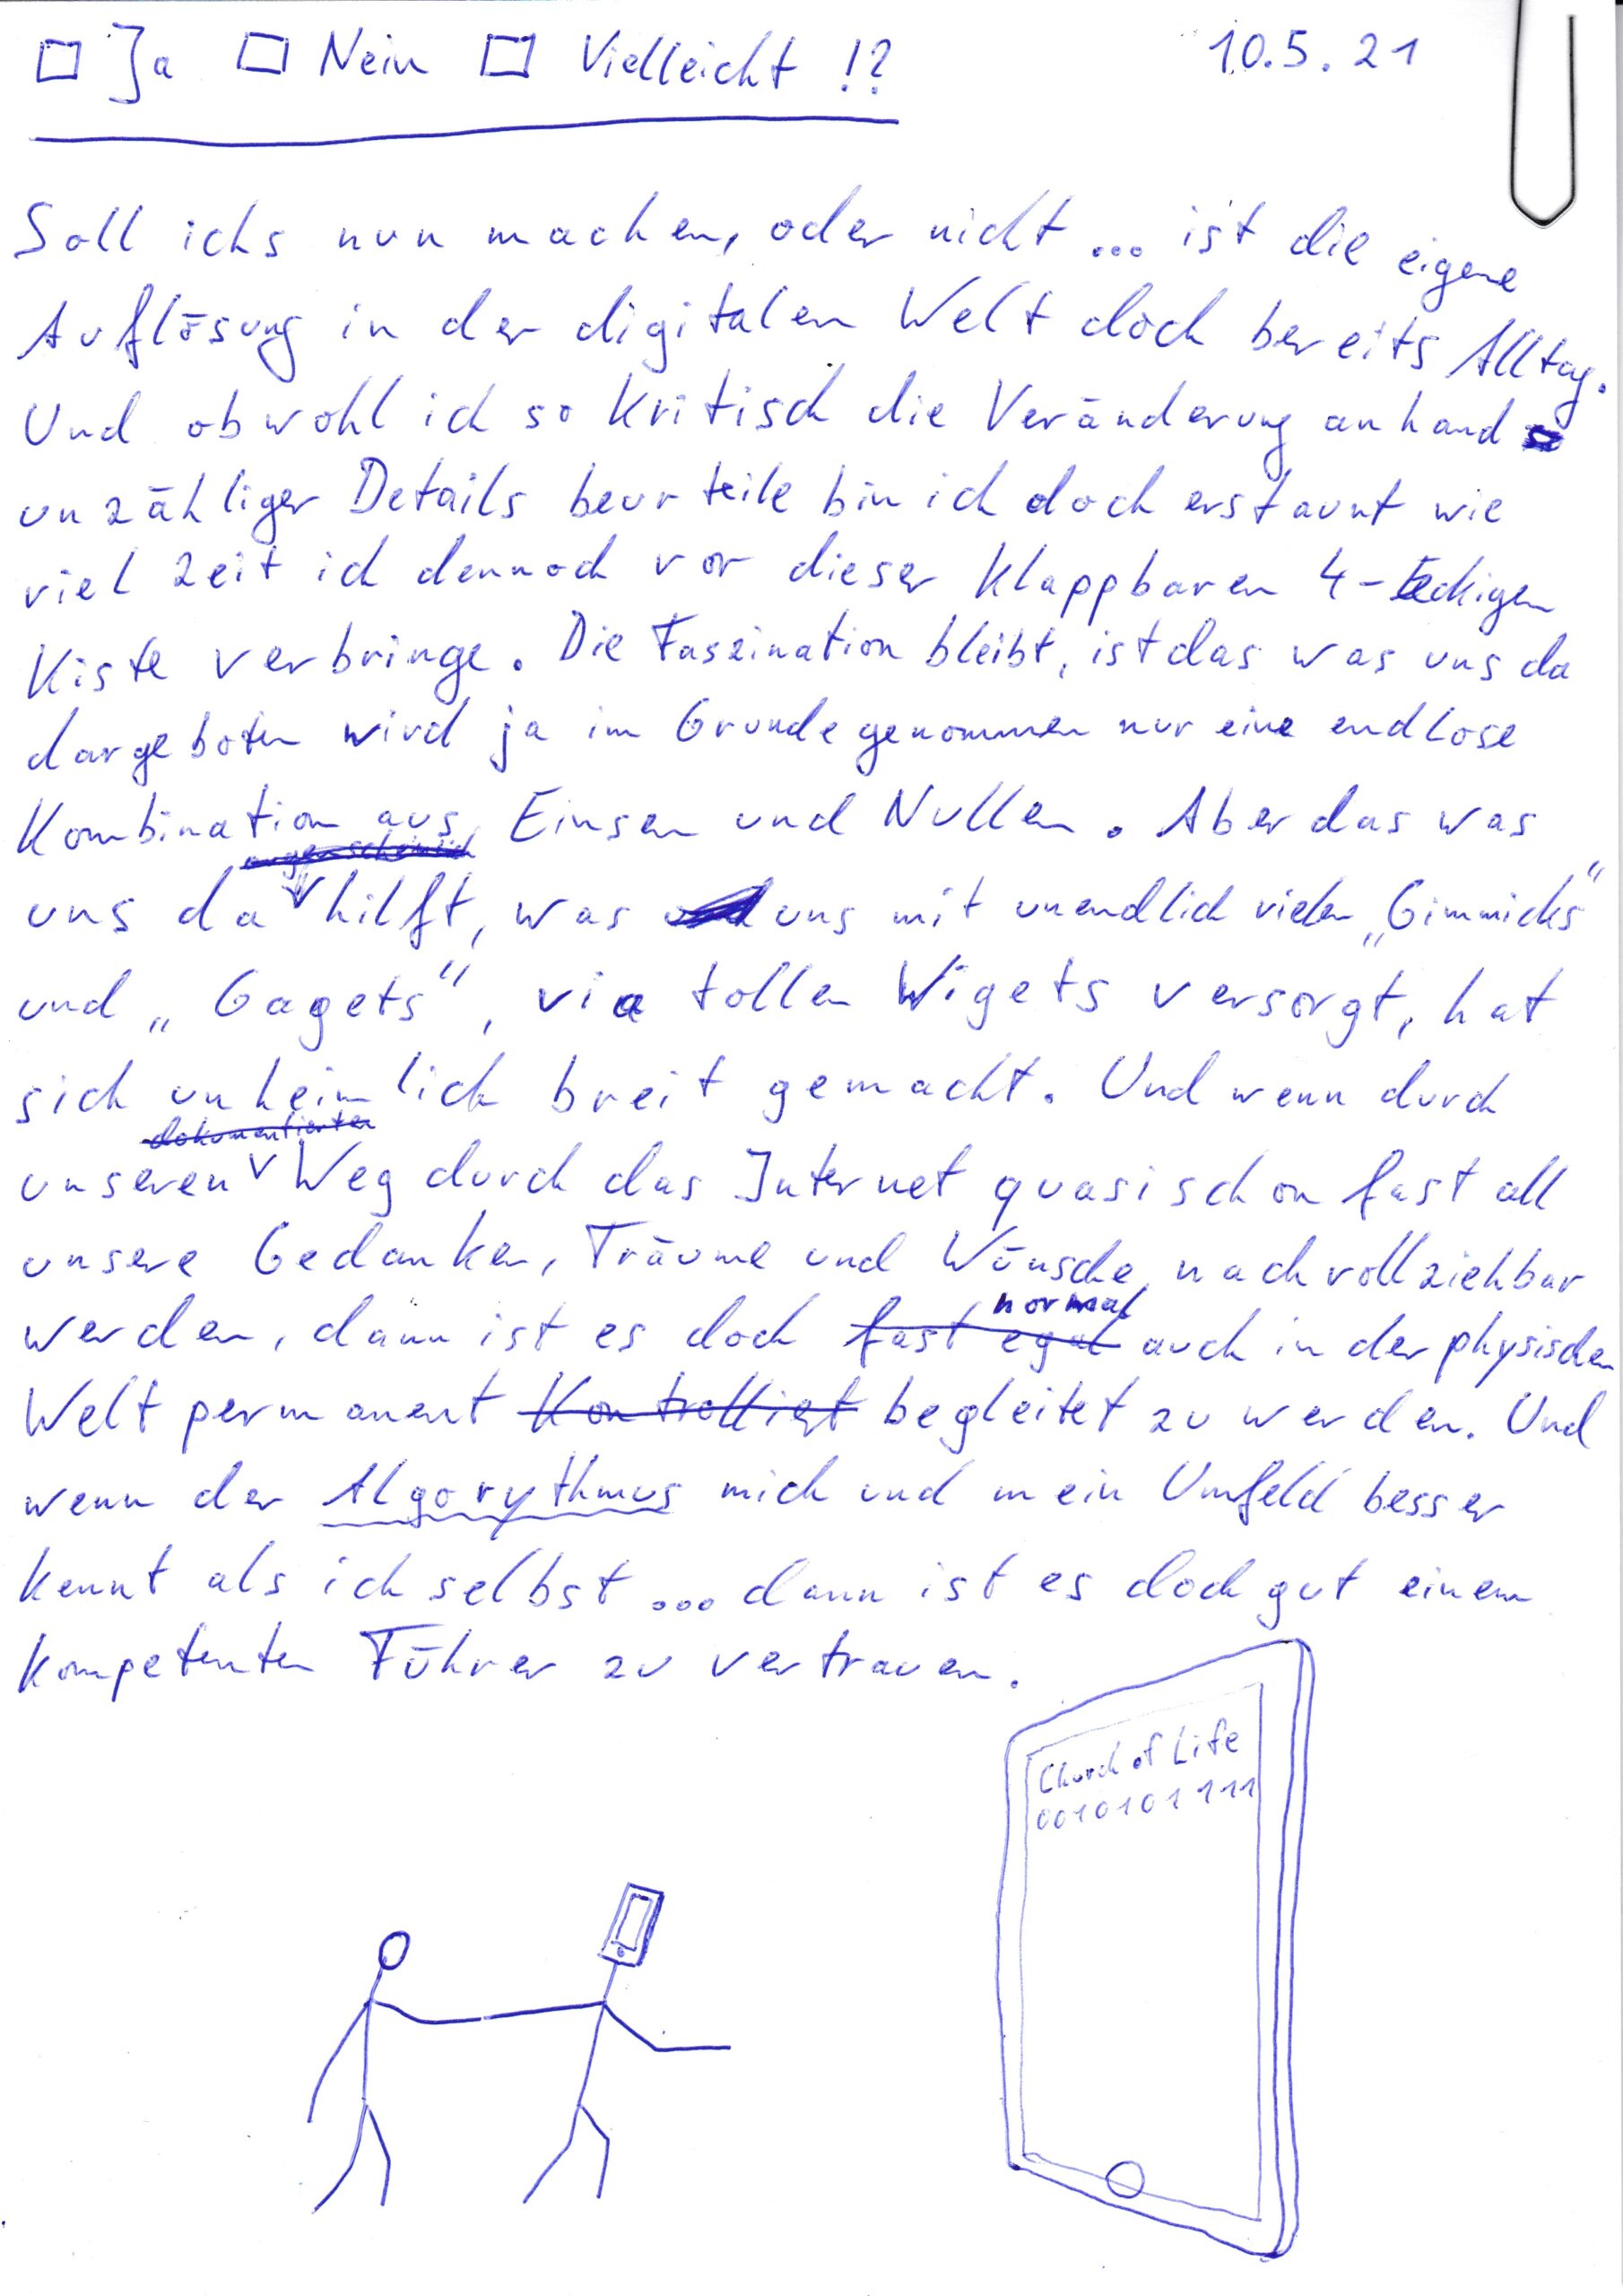 ☐ Ja ☐ Nein ☐ Vielleicht !?
10.5.21
Soll ichs nun machen, oder nicht ... ist die eigene
Auflösung in der digitalen Welt doch bereits Alltag.
Und obwohl ich so kritisch die Veränderung anhand
unzähliger Details beurteile bin ich doch erstaunt wie
viel Zeit ich dennoch vor dieser klappbaren 4-Eckigen
Kiste verbringe. Die Faszination bleibt, ist das was uns da
dargeboten wird ja im Grunde genommen nur eine endlose
Kombination aus Einsen und Nullen. Aber das was
augenscheinlich
uns da hilft, was uns mit unendlich vielen „Gimmicks"
und „Gagets", via tollen Wigets versorgt, hat
sich unheimlich breit gemacht. Und wenn durch
dokumentierten
unseren Weg durch das Internet quasi schon fast all
unsere Gedanken, Träume und Wünsche nachvollziehbar
normal
werden, dann ist es doch fast egal auch in der physischen
Welt permanent Kontrolliert begleitet zu werden. Und
wenn der Algorythmus mich und mein Umfeld besser
kennt als ich selbst ... dann ist es doch gut einem
kompetenten Führer zu vertrauen.
Church of Life
0010101111